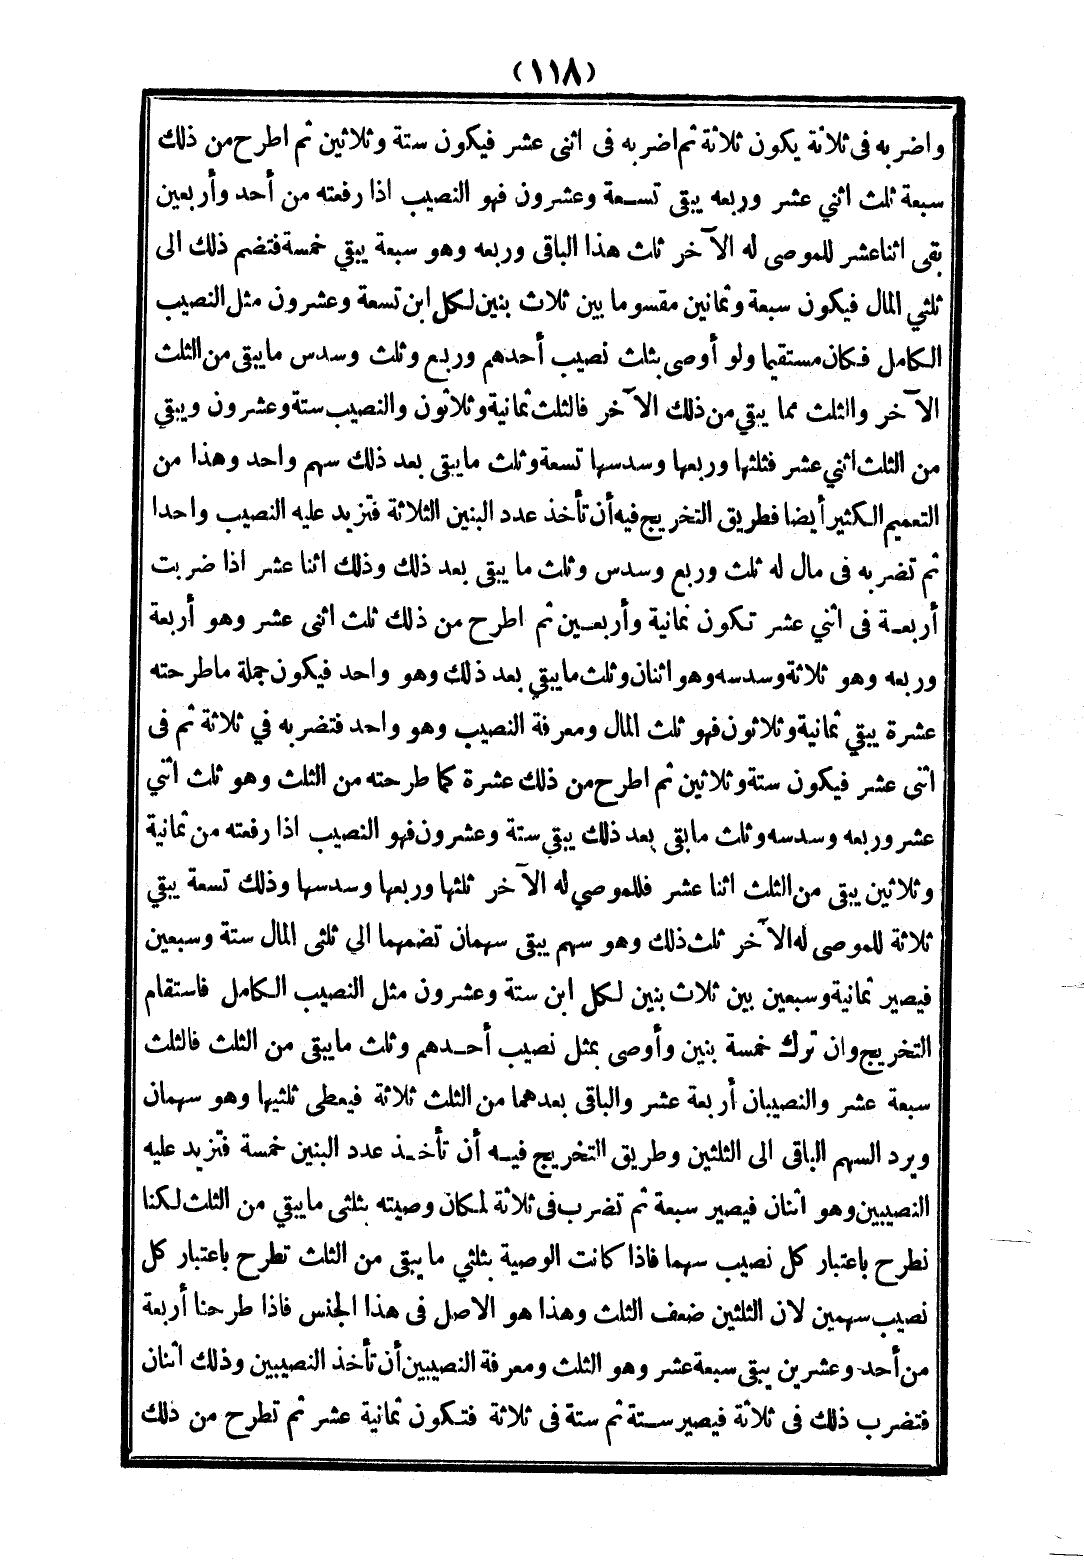 (١١٨)
واضربه فى ثلاثة يكون ثلاثة ثم اضربه فى اثنى عشر فيكون ستة وثلاثين ثم اطرح من ذلك
سبعة ثلث اثني عشر وربعه يبقى تسعة وعشرون فهو النصيب اذا رفعته من أحد وأربعين
بقى اثنا عشر للموصى له الآخر ثلث هذا الباقى وربعه وهو سبعة يبقي خمسة فتضم ذلك الى
ثلثي المال فيكون سبعة وثمانين مقسوما بين ثلاث بنين لكل ابن تسعة وعشرون مثل النصيب
الكامل فكان مستقيما ولو أوصى بثلث نصيب أحدهم وربع وثلث وسدس مايبقى من الثلث
الآخر والثلث مما يبقي من ذلك الآخر فالثلث ثمانية وثلاثون والنصيب ستة وعشرون ويبقي
من الثلث اثني عشر فثلثها وربعها وسدسها تسعة وثلث مايبقى بعد ذلك سهم واحد وهذا من
التعميم الكثير أيضا فطريق التخريج فيه أن تأخذ عدد البنين الثلاثة فتزيد عليه النصيب واحدا
ثم تضربه فى مال له ثلث وربع وسدس وثلث ما يبقى بعد ذلك وذلك اثنا عشر اذا ضربت
أربعة فى اثني عشر تكون ثمانية وأربعين ثم اطرح من ذلك ثلث اثنى عشر وهو أربعة
وربعه وهو ثلاثة وسدسه وهو اثنان وثلث مايبقي بعد ذلك وهو واحد فيكون جملة ماطرحته
عشرة يبقي ثمانية وثلاثون فهو ثلث المال ومعرفة النصيب وهو واحد فتضربه في ثلاثة ثم فى
اثنى عشر فيكون ستة وثلاثين ثم اطرح من ذلك عشرة كما طرحته من الثلث وهو ثلث اثني
عشر وربعه وسدسه وثلث مابقى بعد ذلك يبقي ستة وعشرون فهو النصيب اذا رفعته من ثمانية
وثلاثين يبقى من الثلث اثنا عشر فللموصي له الآخر ثلثها وربعها وسدسها وذلك تسعة يبقي
ثلاثة للموصى له الآخر ثلث ذلك وهو سهم يبقى سهمان تضمهما الي ثلثى المال ستة وسبعين
فيصير ثمانية وسبعين بين ثلاث بنين لكل ابن ستة وعشرون مثل النصيب الكامل فاستقام
التخريج وان ترك خمسة بنين وأوصى بمثل نصيب أحدهم وثلث مايبقى من الثلث فالثلث
سبعة عشر والنصيبان أربعة عشر والباقى بعدهما من الثلث ثلاثة فيعطى ثلثيها وهو سهمان
ويرد السهم الباقى الى الثلثين وطريق التخريج فيه أن تأخذ عدد البنين خمسة فتزيد عليه
النصيبين وهو اثنان فيصير سبعة ثم تضرب فى ثلاثة لمكان وصيته بثلثى مايبقي من الثلث لكنا
نطرح باعتبار كل نصيب سهما فاذا كانت الوصية بثلثي ما يبقى من الثلث تطرح باعتبار كل
نصيب سهمين لان الثلثين ضعف الثلث وهذا هو الاصل فى هذا الجنس فاذا طرحنا أربعة
من أحد وعشرين يبقى سبعة عشر وهو الثلث ومعرفة النصيبين أن تأخذ النصيبين وذلك اثنان
فتضرب ذلك فى ثلاثة فيصير ستة ثم ستة فى ثلاثة فتكون ثمانية عشر ثم تطرح من ذلك